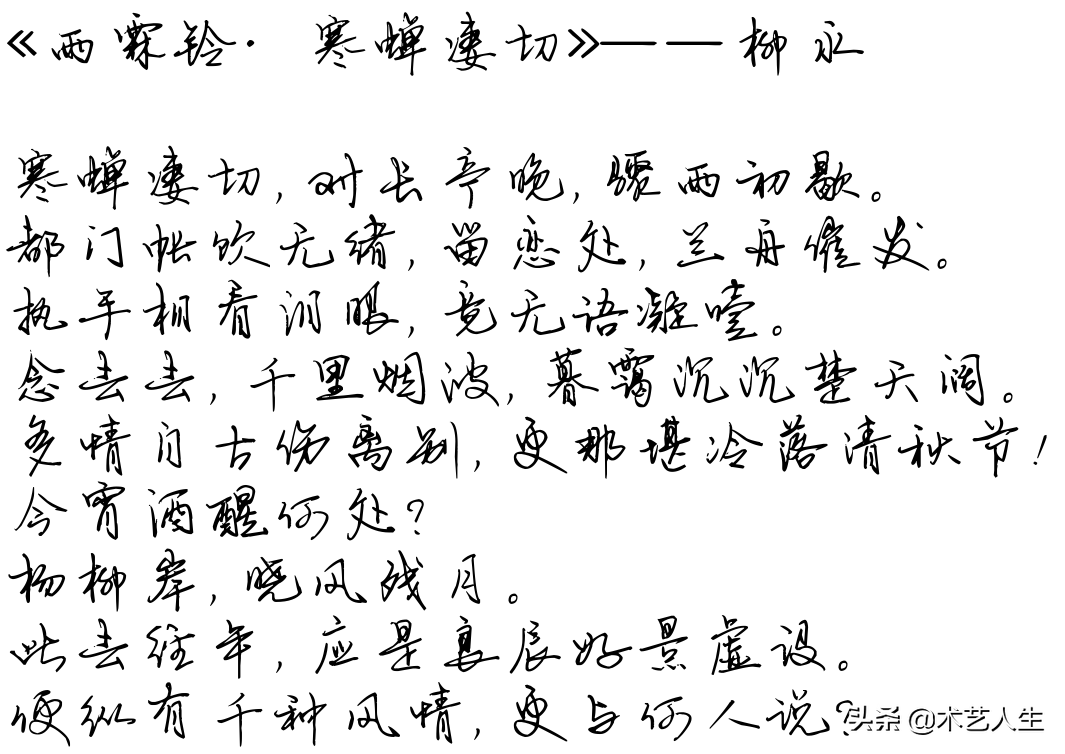 《雨霖铃·寒蝉凄切》——柳永
寒蝉凄切,对长亭晚,骤雨初歇。
都门帐饮无绪,留恋处,兰舟催发。
执手相看泪眼,竟无语凝噎。
念去去,千里烟波,暮霭沉沉楚天阔。
多情自古伤离别,更那堪冷落清秋节!
今宵酒醒何处?
杨柳岸,晓风残月。
此去经年,应是良辰好景虚设。
便纵有千种风情,更与何人说?
头条 @术艺人生